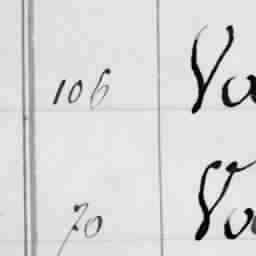 106 Vo
70 Vo